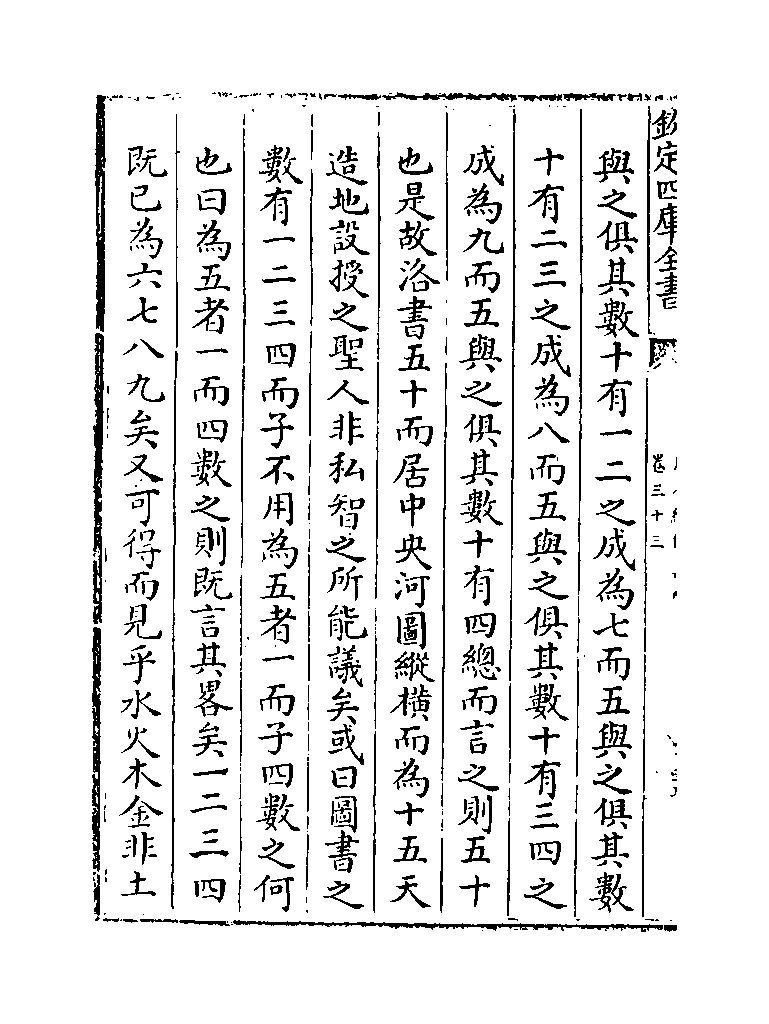 欽定四庫全書
卷三十三
與之俱其數十有一二之成為七而五與之俱其數
十有二三之成為八而五與之俱其數十有三四之
成為九而五與之俱其數十有四總而言之則五十
也是故洛書五十而居中央河圖縱橫而為十五天
造地設授之聖人非私智之所能議矣或曰圖書之
數有一二三四而子不用為五者一而子四數之何
也曰為五者一而四數之則既言其畧矣一二三四
既已為六七八九矣又可得而見乎水火木金非土